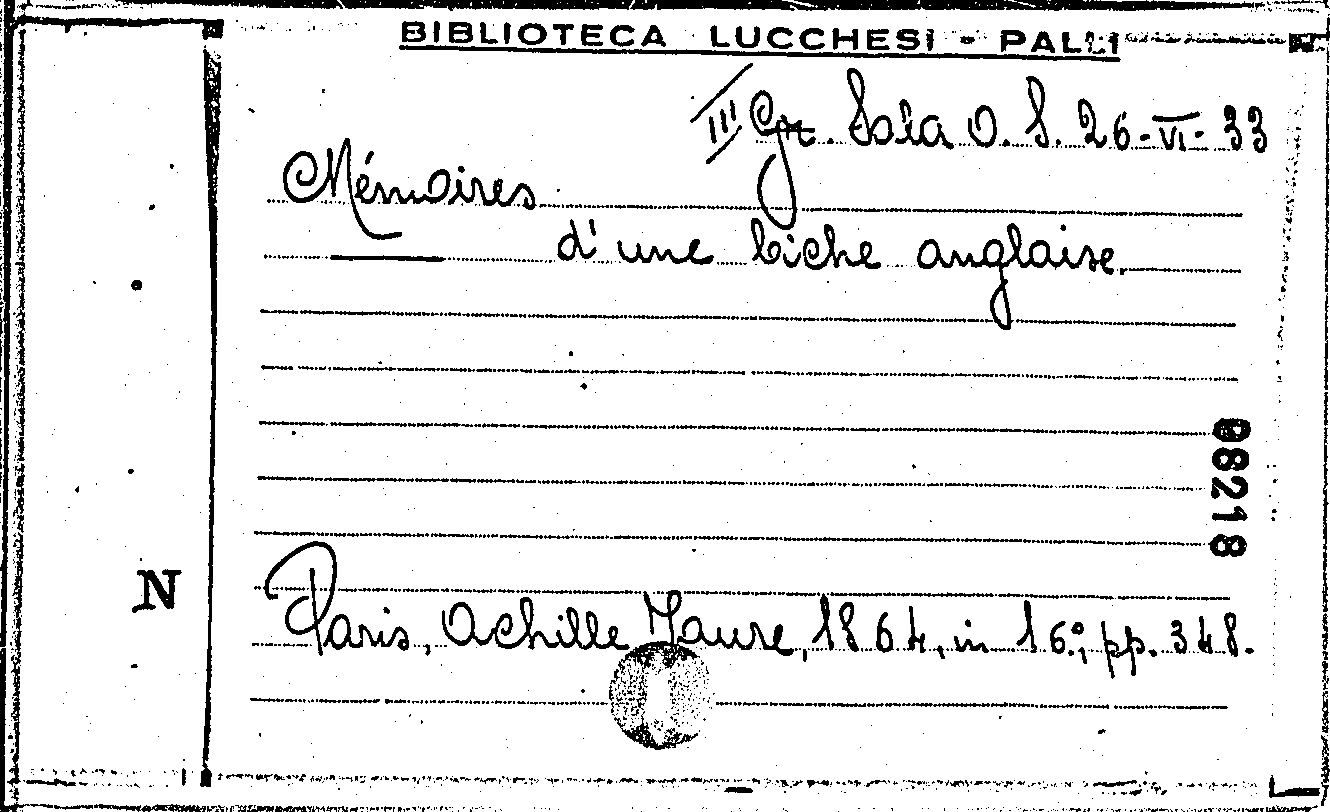 BIBLIOTECA LUCCHESI - PALLI
III Gr. Sala O. S. 26-VI-33
Mémoires
d'une biche anglaise.
08218
N
Paris, Achille Faure, 1864, in 16°, pp. 348.